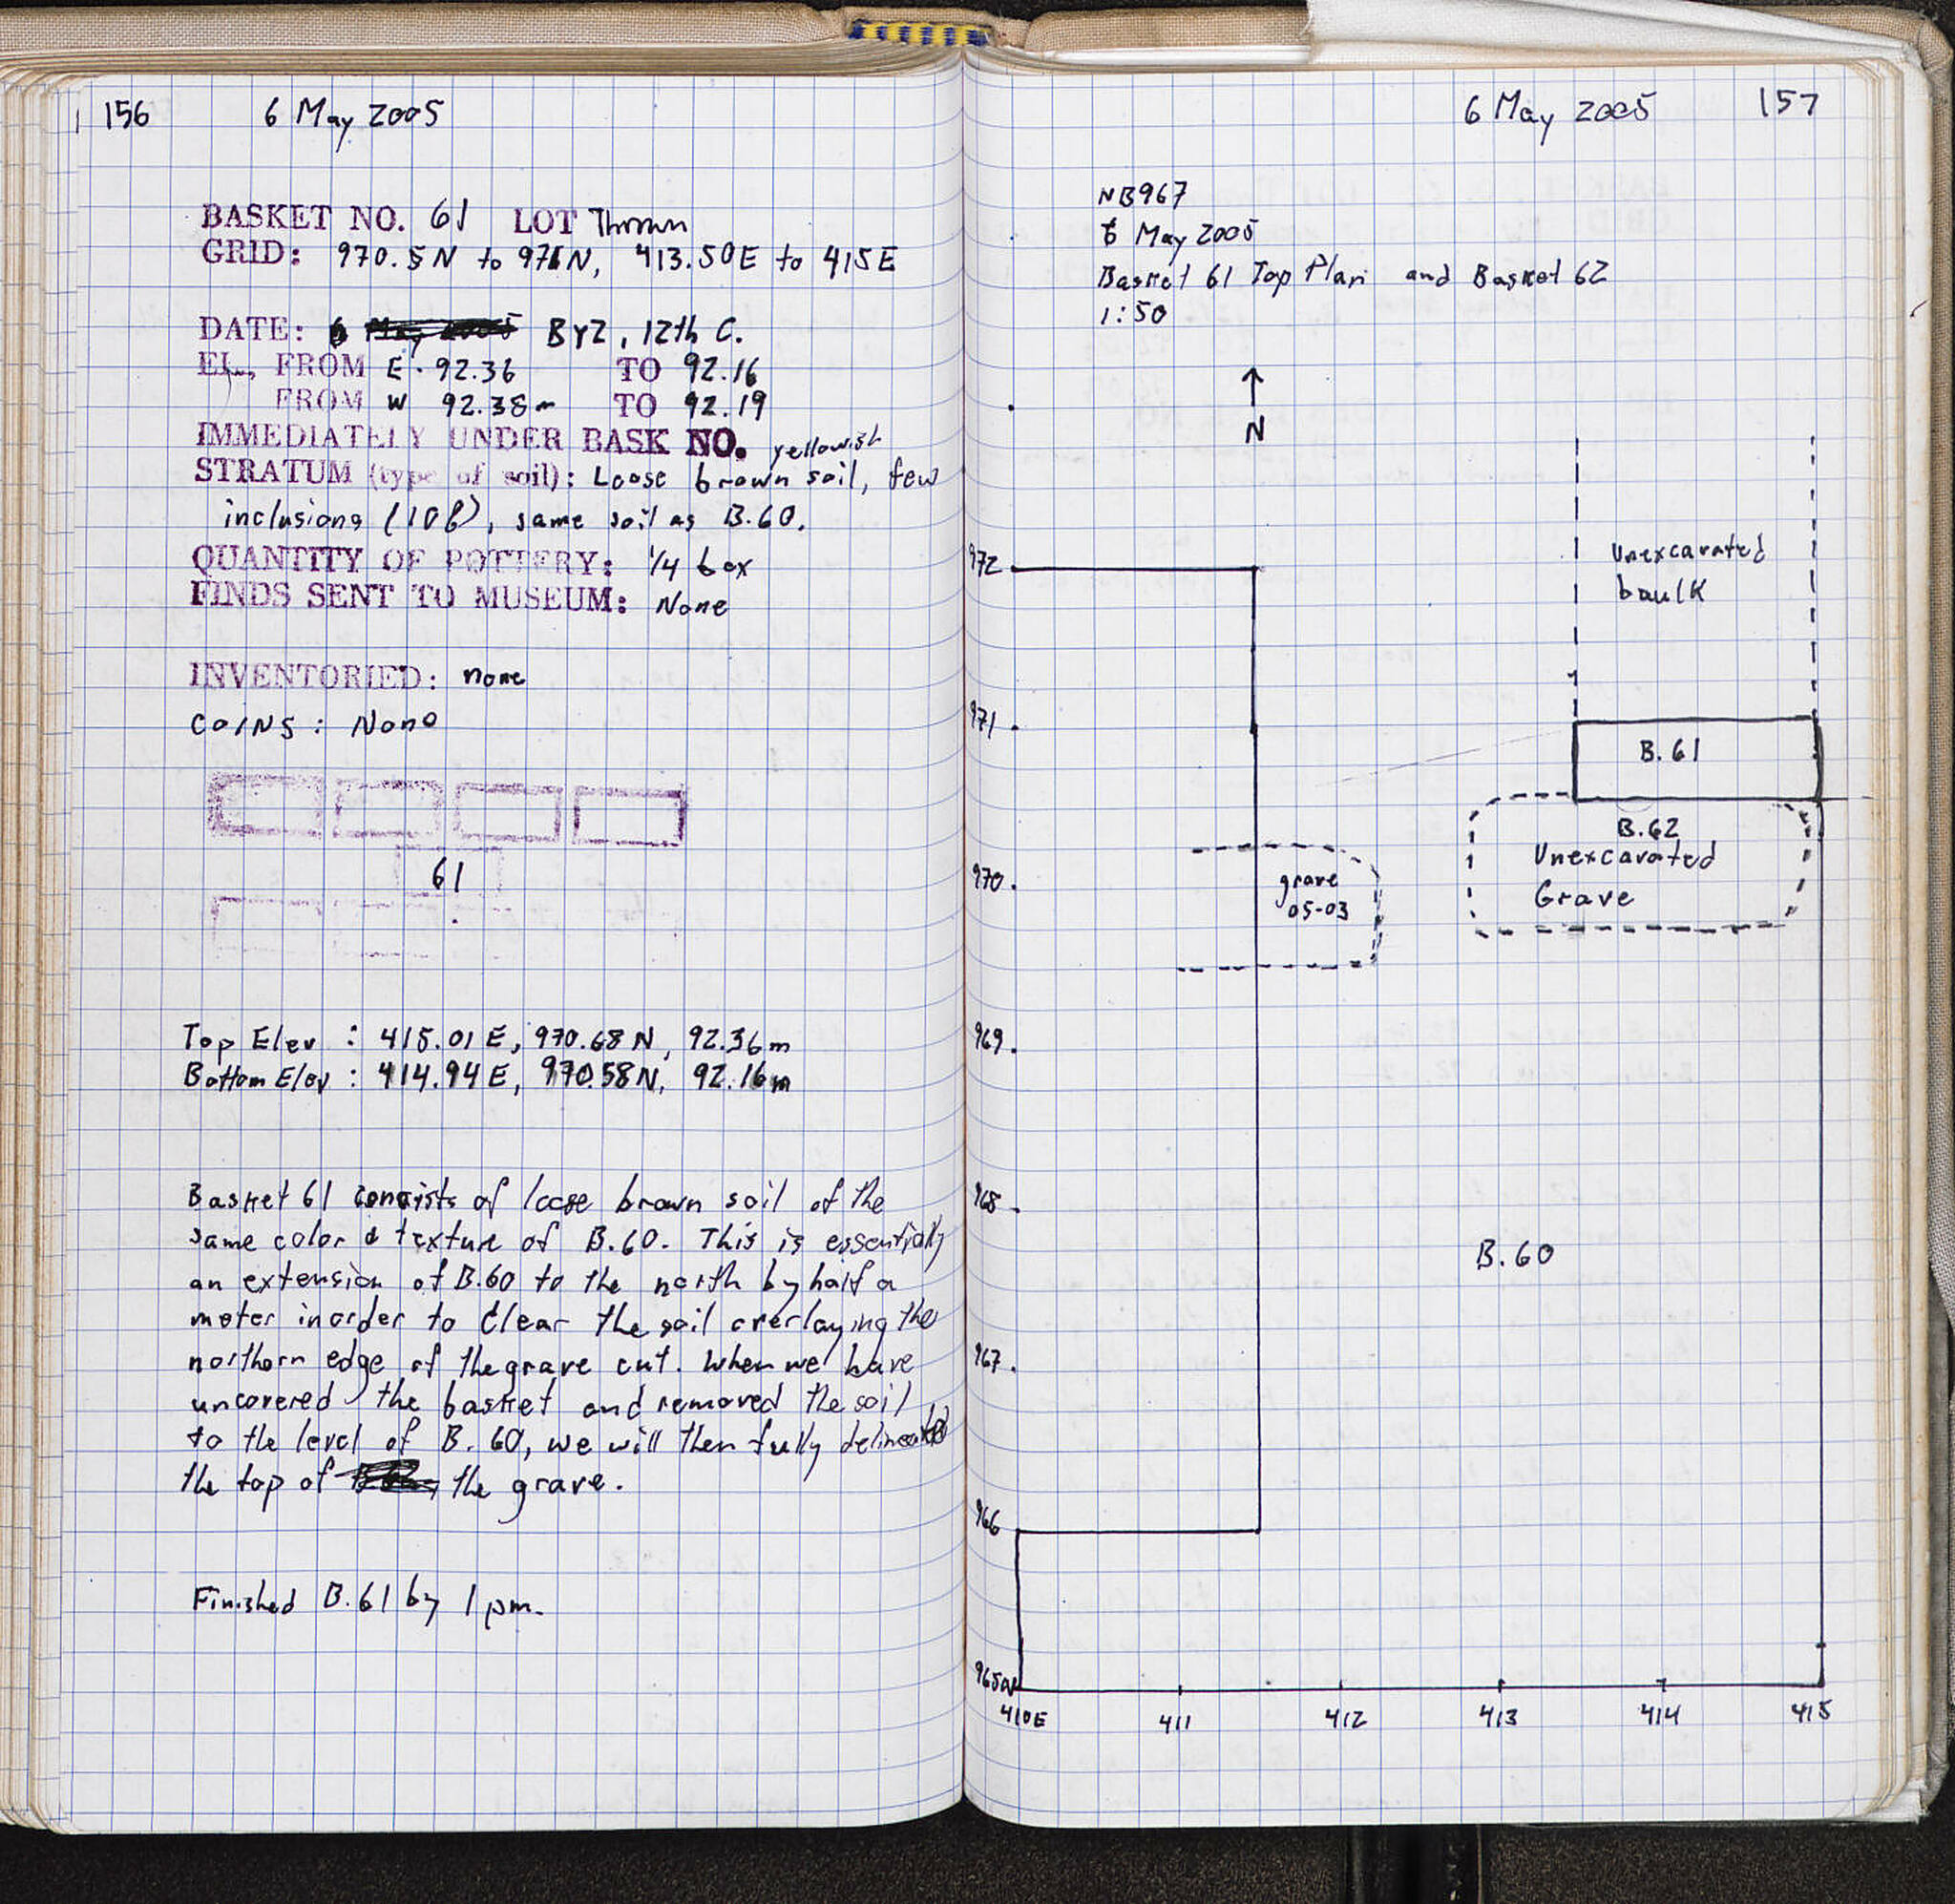 156 6 May 2005
BASKET NO. 61 LOT Thrown
GRID: 970.5N to 971N, 413.50E to 415E
DATE: BYZ, 12th C.
EL., FROM E. 92.36 TO 92.16
FROM W 92.38m TO 92.19
IMMEDIATELY UNDER BASK NO.
yellowish
STRATUM (type of soil): Loose brown soil, few
inclusions (10%), same soil as B.60.
QUANTITY OF POTTERY: 1/4 box
FINDS SENT TO MUSEUM: None
INVENTORIED: none
COINS: None
61
Top Elev : 415.01 E, 970.68 N, 92.36m
Bottom Elev : 414.94 E, 970.58N, 92.16m
Basket 61 consists of loose brown soil of the
same color & texture of B.60. This is essentially
an extension of B.60 to the north by half a
meter inorder to clear the soil overlaying the
northern edge of the grave cut. When we have
uncovered the basket and removed the soil
to the level of B. 60, we will then fully delineate
the top of the grave.
Finished B.61 by 1pm.
6 May 2005 157
NB967
6 May 2005
Basket 61 Top Plan and Basket 62
1:50
N
Unexcavated
baulk
972
971
B.61
B.62
Unexcavated
Grave
970
grave
05-03
969
968
B.60
967
966
965N
410E 411 412 413 414 415